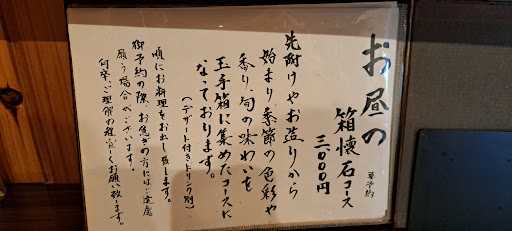 お昼の
箱懐石コース
要予約
三〇〇〇円
先附けやお造りから
始まり、季節の色彩や
香り、旬の味わいを
玉手箱に集めたコースに
なっております。
(デザート付き・ドリンク別)
順にお料理をお出し致します。
御予約の際、お急ぎの方にはご遠慮
願う場合がございます。
何卒、ご理解の程宜しくお願い致します。